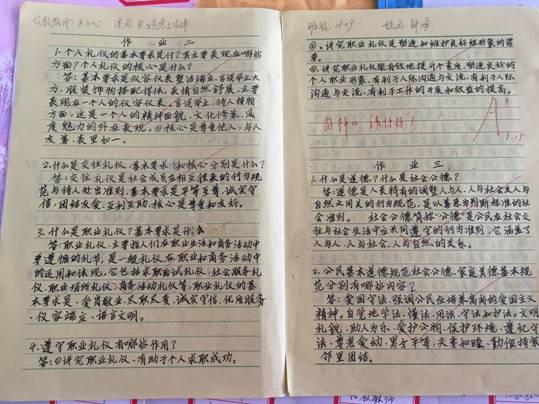 作业二
1.个人礼仪的基本要求是什么?其主要表现在哪些
方面?个人礼仪的核心是什么?
答:基本要求是仪容仪表整洁端庄,言谈举止大
方,服装饰物搭配得体,表情自然舒展。主要
表现在一个人的仪容仪表、言谈举止、待人接物
方面,这是一个人的精神面貌、文化修养、风
度魅力的外在表现。核心是尊重他人,与人
友善,表里如一。
2.什么是交往礼仪,基本要求和核心分别是什么?
答:交往礼仪是社会成员在相互往来的行为规
范与待人处世准则,基本要求是平等互尊,诚实守
信,团结友爱,互利互助,核心是尊重和友好。
3.什么是职业礼仪?基本要求是什么
答:职业礼仪,主要指人们在职业生活和商务活动中
要遵循的礼节,是一般礼仪在职业和商务活动中
的运用和体现。它包括求职面试礼仪、社会服务礼
仪、职业场所礼仪、商务活动礼仪等。职业礼仪的基
本要求是:爱岗敬业、尽职尽责、诚实守信、优质服务
、仪容端庄、语言文明。
4.遵守职业礼仪有哪些作用?
答:①讲究职业礼仪,有助于个人求职成功。
②讲究职业礼仪是塑造和维护良好组织形象的需
要。
讲究职业礼仪能有效地提升个人素质,塑造美好的
个人职业形象,有利于人际沟通与交流,有利于人际
沟通与交流,有利于工作的开展和效益的提高。
好样的
请保持!
A
作业三
1.什么是道德?什么是社会公德?
答:道德是人类特有的调整人与人、人与社会及人与
自然之间关系的行为规范,是以善恶为判断标准的社
会准则。社会公德简称"公德"是公民在社会交
往与社会生活中应共同遵守的行为准则,它涵盖了
人与人、人与社会、人与自然的关系。
2.公民基本道德规范社会公德、家庭美德基本规
范分别有哪些内容?
答:爱国守法,强调公民应培养高尚的爱国主义
精神,自觉地学法、懂法、用法、守法和护法。文明
礼貌、助人为乐、爱护公物、保护环境、遵纪守
法、尊老爱幼、男女平等、夫妻和睦、勤俭持家
邻里团结。